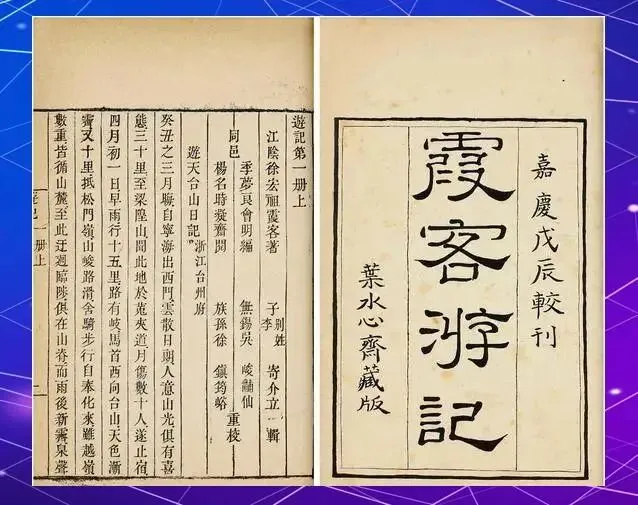 嘉慶戊辰較刊
霞客游記
葉水心齋藏版
遊記第一册上
江陰徐宏祖霞客著 子李寄介立輯
别姓
同邑
季夢良會明編 無錫吳 峻 仙
楊名時凝齋閱 族孫徐 鎮筠峪
重
遊天台山日記 浙江台州府
癸丑之三月晦自寧海出西門雲散日朗人意山光俱有喜
態三十里至梁隍山聞此地於菟夾道月傷數十人遂止宿
四月初一日早雨行十五里路有岐馬首西向台山天色漸
霽又十里抵松門嶺山峻路滑舍騎步行自奉化來雖越嶺
數重皆循山麓至此迂迴臨陟俱在山脊而雨後新霽泉聲
一册上